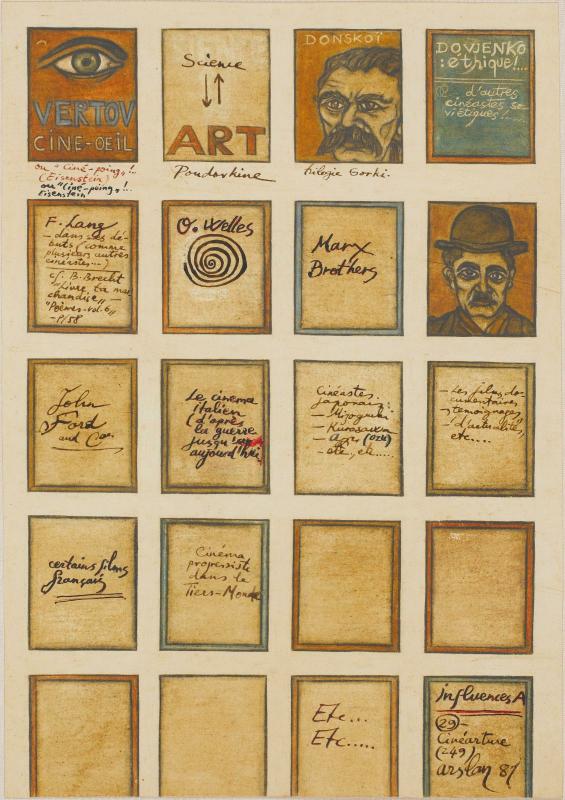 VERTOV
CINE-OEIL
ou "Ciné-poing"!..
(Eisenstein)
ou "Ciné-poing"!..
Eisenstein
Science
ART
Poudovkine
DONSKOÏ
trilogie Gorki.
DOVJENKO
: éthique!....
d'autres
cinéastes so-
viétiques!....
F. Lang
- dans ses dé-
buts (comme
plusieurs autres
cinéastes...)
cf. B. Brecht
"Livre ta mar
chandise" -
"Poèmes-vol. 6"
- p/58
O. Welles
Marx
Brothers
John
Ford
and Co.
Le cinéma
italien
(d'après
la guerre
jusqu'
aujourd'hui
Cinéastes
japonais:
- Mizoguchi
- Kurosawa
- (OZU)
- etc, etc.....
- Les films do-
cumentaires
témoignages
d'actualités,
etc....
certains films
français
Cinéma
progressiste
dans le
Tiers-Monde
Etc...
Etc.....
influences A
29 -
Cinéarture
(249)
arslan 87